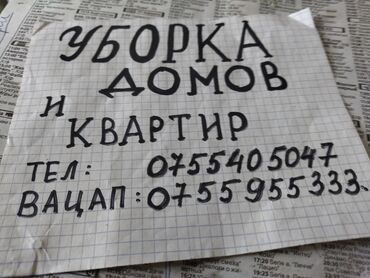 УБОРКА
ДОМОВ
И
КВАРТИР
ТЕЛ: 0755405047
ВАЦАП: 0755955333